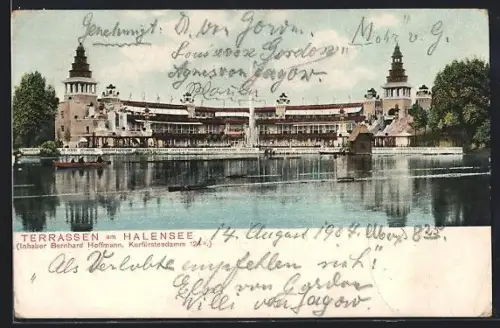 Genehmigt: D. von Gordon.
Louis von Gordon
Agnes von Jagow.
"Motz v. G.
TERRASSEN am HALENSEE
(Inhaber Bernhard Hoffmann, Kurfürstendamm 124.)
14. August 1904. Abends 8 25.
"Als Verlobte empfehlen sich!
Elsa von Gordon
Willi von Jagow.